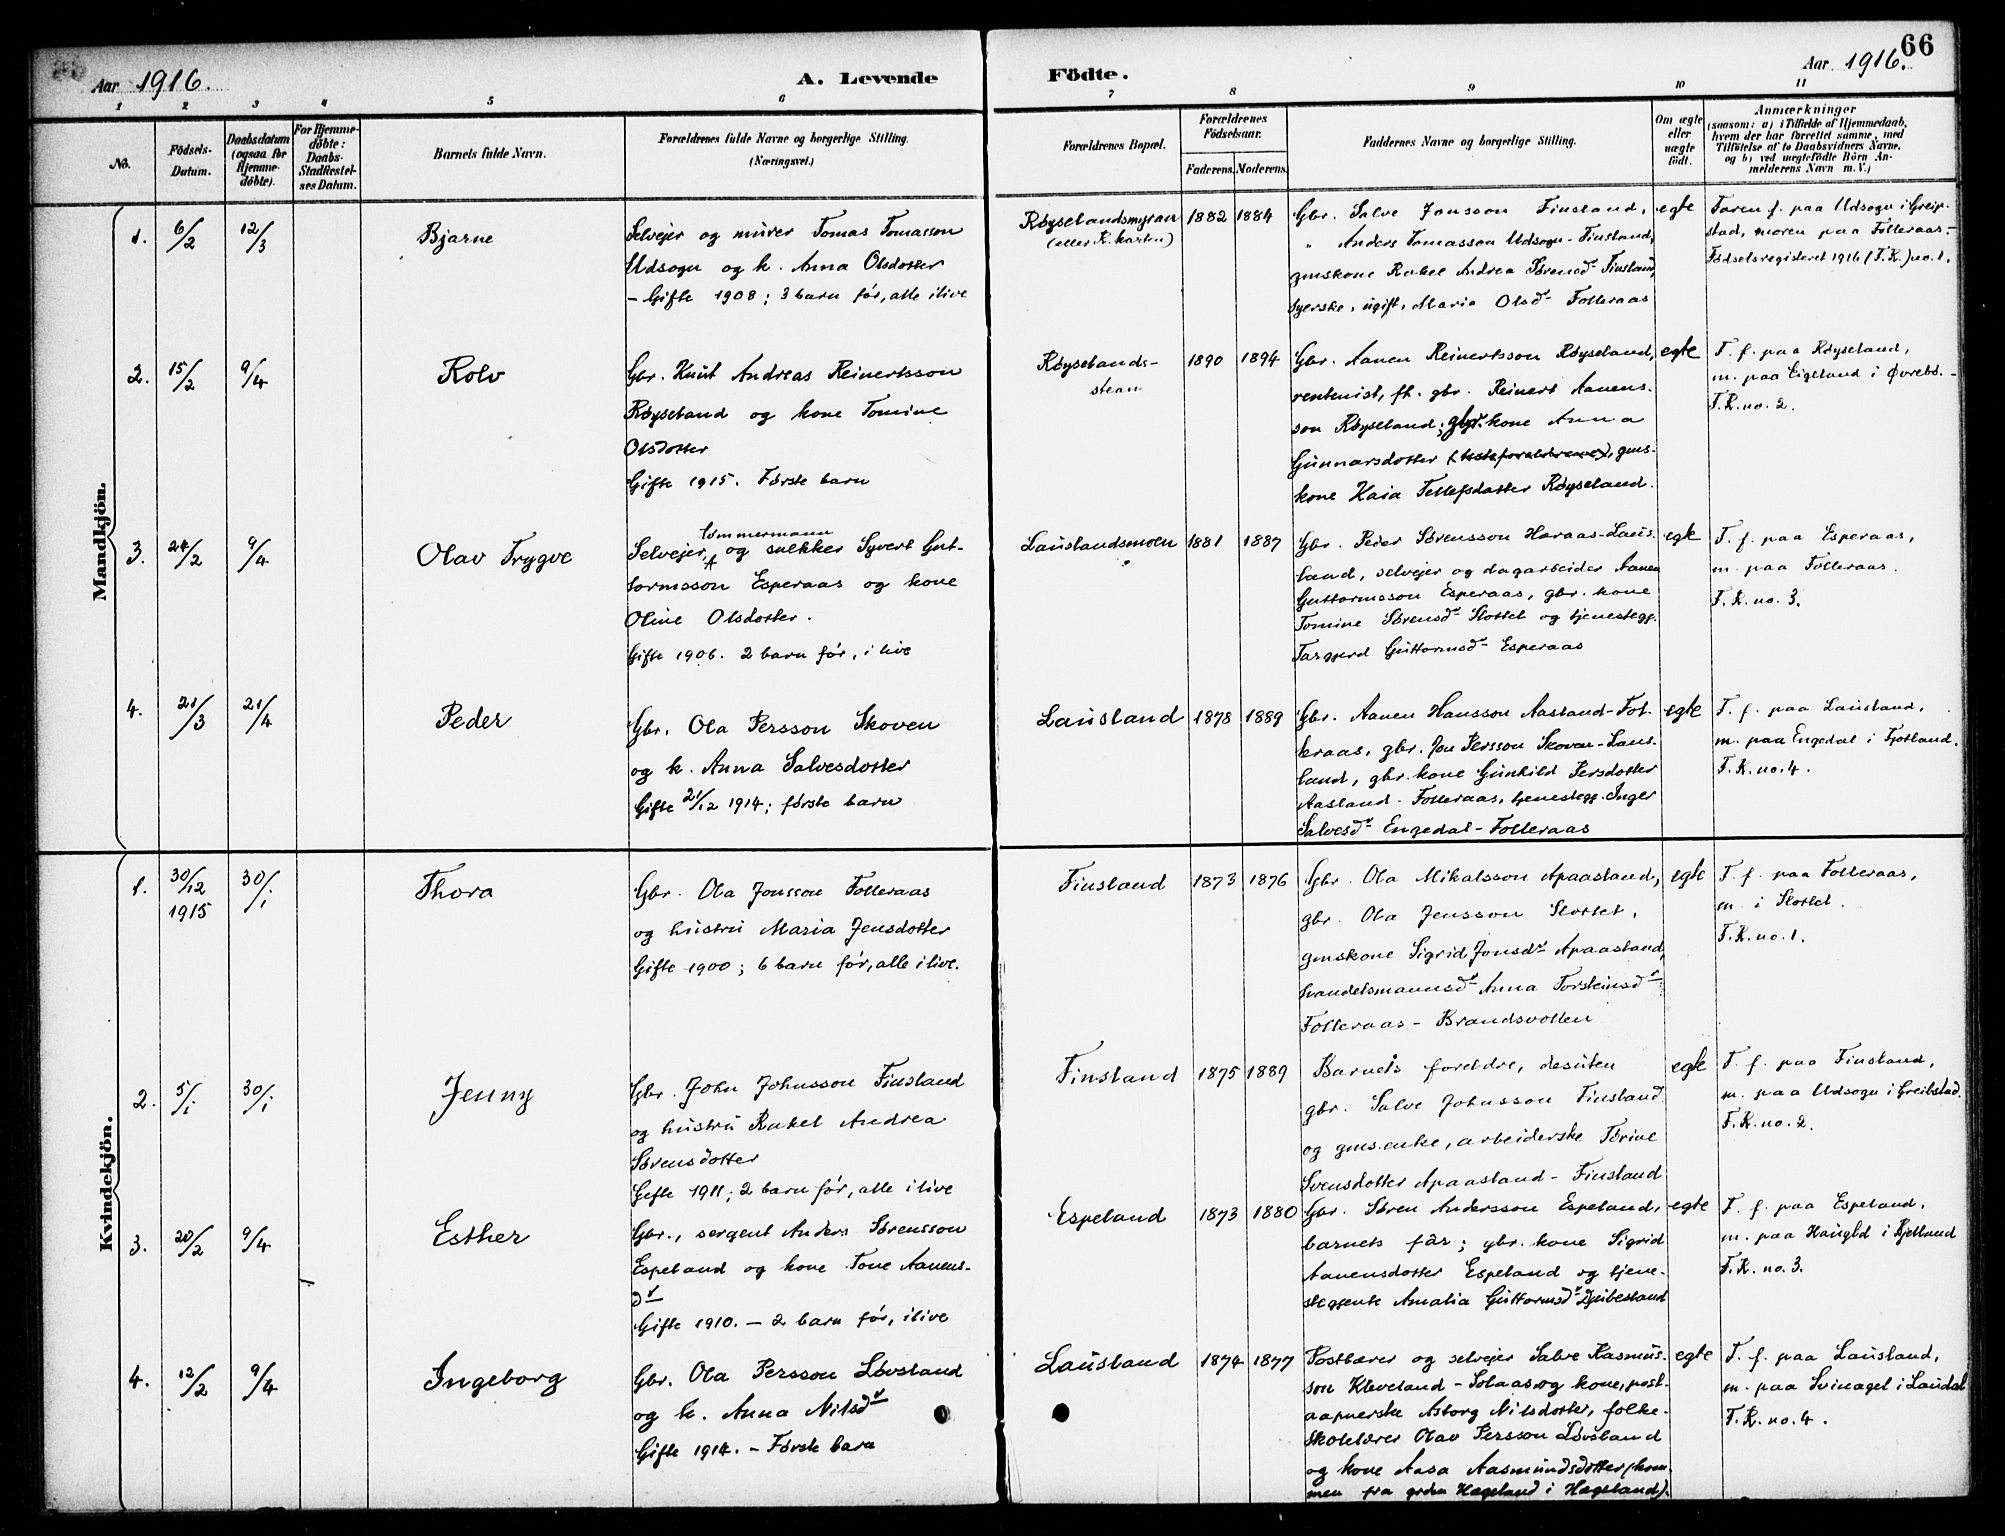 66
Aar 1916.
A. Levende Födte.
Aar 1916.
1 2 3 4 5 6 7 8 9 10 11
No.
Födsels-Datum.
Daabsdatum (ogsaa for Hjemmedöbte).
For Hjemmedöbte: Daabs-Stadfæstelses Datum.
Barnets fulde Navn.
Forældrenes fulde Navne og borgerlige Stilling.
(Næringsvei.)
Forældrenes Bopæl.
Forældrenes Födselsaar.
Faderens. Moderens.
Faddernes Navne og borgerlige Stilling.
Om ægte eller uægte födt.
Anmærkninger
(saasom: a) i Tilfælde af Hjemmedaab,
hvem der har forrettet samme, med
Tilföielse af to Daabsvidners Navne,
og b) ved uægtefödte Börn An-
melderens Navn m. V.)
Mandkjön.
1. 6/2 12/3 Bjarne
Selvejer og murer Tomas Tomasson
Udsogn og k. Anna Olsdotter
– Gifte 1908; 3 barn før, alle ilive
Røyselandsmyran
(eller R. karten)
1882 1884
Gbr. Salve Jonsson Finsland,
" Anders Tomasson Udsogn-Finsland,
gmskone Rakel Andrea Sørensd. Finsland,
syerske, ugift, Maria Olsd. Folleraas
egte
Faren f. paa Udsogn i Greip-
stad, moren paa Folleraas. –
Fødselsregisteret 1916 (F.R.) no. 1.
2. 15/2 9/4 Rolv
Gbr. Knut Andreas Reinertsson
Røyseland og kone Tomine
Olsdotter
Gifte 1915. Første barn
Røyselands-
stean
1890 1894
Gbr. Aanen Reinertsson Røyseland,
rentenist, fh. gbr. Reinert Aanens-
son Røyseland; gbr. kone Anna
Gunnarsdotter, gms-
kone Kaia Tellefsdatter Røyseland.
egte
F. f. paa Røyseland,
m. paa Eigeland i Øvrebs. –
F.R. no. 2.
3. 24/2 9/4 Olav Trygve
Selvejer, tømmermann og snekker Syvert Gut-
tormsson Esperaas og kone
Oline Olsdotter.
Gifte 1906. 2 barn før, i live
Lauslandsmoen
1881 1887
Gbr. Peder Sørensson Haraas-Laus-
land, selvejer og dagarbeider Aanen
Guttormsson Esperaas, gbr. kone
Tomine Sørensd. Slottet og tjenestegj.
Torgjerd Guttormsd. Esperaas
egte
F. f. paa Esperaas,
m. paa Folleraas.
F.R. no. 3.
4. 21/3 21/4 Peder
Gbr. Ola Persson Skoven
og k. Anna Salvesdotter
Gifte 21/12 1914; første barn
Lausland
1878 1889
Gbr. Aanen Hansson Aasland-Fol-
leraas, gbr. Jon Persson Skoven-Laus-
land, gbr. kone Gunhild Persdotter
Aasland-Folleraas, tjenestegj. Inger
Salvesd. Engedal-Folleraas
egte
F. f. paa Lausland,
m. paa Engedal i Fjotland.
F.R. no. 4.
Kvindekjön.
1. 30/12 1915 30/1 Thora
Gbr. Ola Jonsson Folleraas
og hustru Maria Jensdotter
Gifte 1900; 6 barn før, alle ilive.
Finsland
1873 1876
Gbr. Ola Mikalsson Apaasland,
gbr. Ola Jensson Slottet,
gmskone Sigrid Jonsd. Apaasland,
handelsmannsd. Anna Torsteinsd.
Folleraas – Brandsvollen
egte
F. f. paa Folleraas,
m. i Slottet.
F.R. no. 1.
2. 5/1 30/1 Jenny
Gbr. John Johnsson Finsland
og hustru Rakel Andrea
Sørensdotter
Gifte 1911; 2 barn før, alle i live
Finsland
1875 1889
Barnets foreldre, desuten
gbr. Salve Johnsson Finsland
og gms.enke, arbeiderske Tørine
Svensdotter Apaasland – Finsland
egte
F. f. paa Finsland,
m. paa Udsogn i Greibstad.
F.R. no. 2.
3. 20/2 9/4 Esther
Gbr., sergent Anders Sørensson
Espeland og kone Tone Aanens-
dr
Gifte 1910. – 2 barn før, ilive
Espeland
1873 1880
Gbr. Søren Andersson Espeland,
barnets far; gbr. kone Sigrid
Aanensdotter Espeland og tjene-
stegjente Amalia Guttormsd. Djubesland
egte
F. f. paa Espeland,
m. paa Haugld i Bjelland
F.R. no. 3.
4. 12/2 9/4 Ingeborg
Gbr. Ola Persson Løvsland
og k. Anna Nilsd.
Gifte 1914. – Første barn
Lausland
1874 1877
Postbærer og selvejer Salve Rasmus-
son Kleveland – Solaas og kone, post-
aapnerske Astorg Nilsdotter, folke-
skolelærer Olav Persson Løvsland
og kone Aasa Aasmundsdotter (kom-
men fra grden Hægeland i Hægeland).
egte
F. f. paa Lausland,
m. paa Svinagel i Laudal
F.R. no. 4.